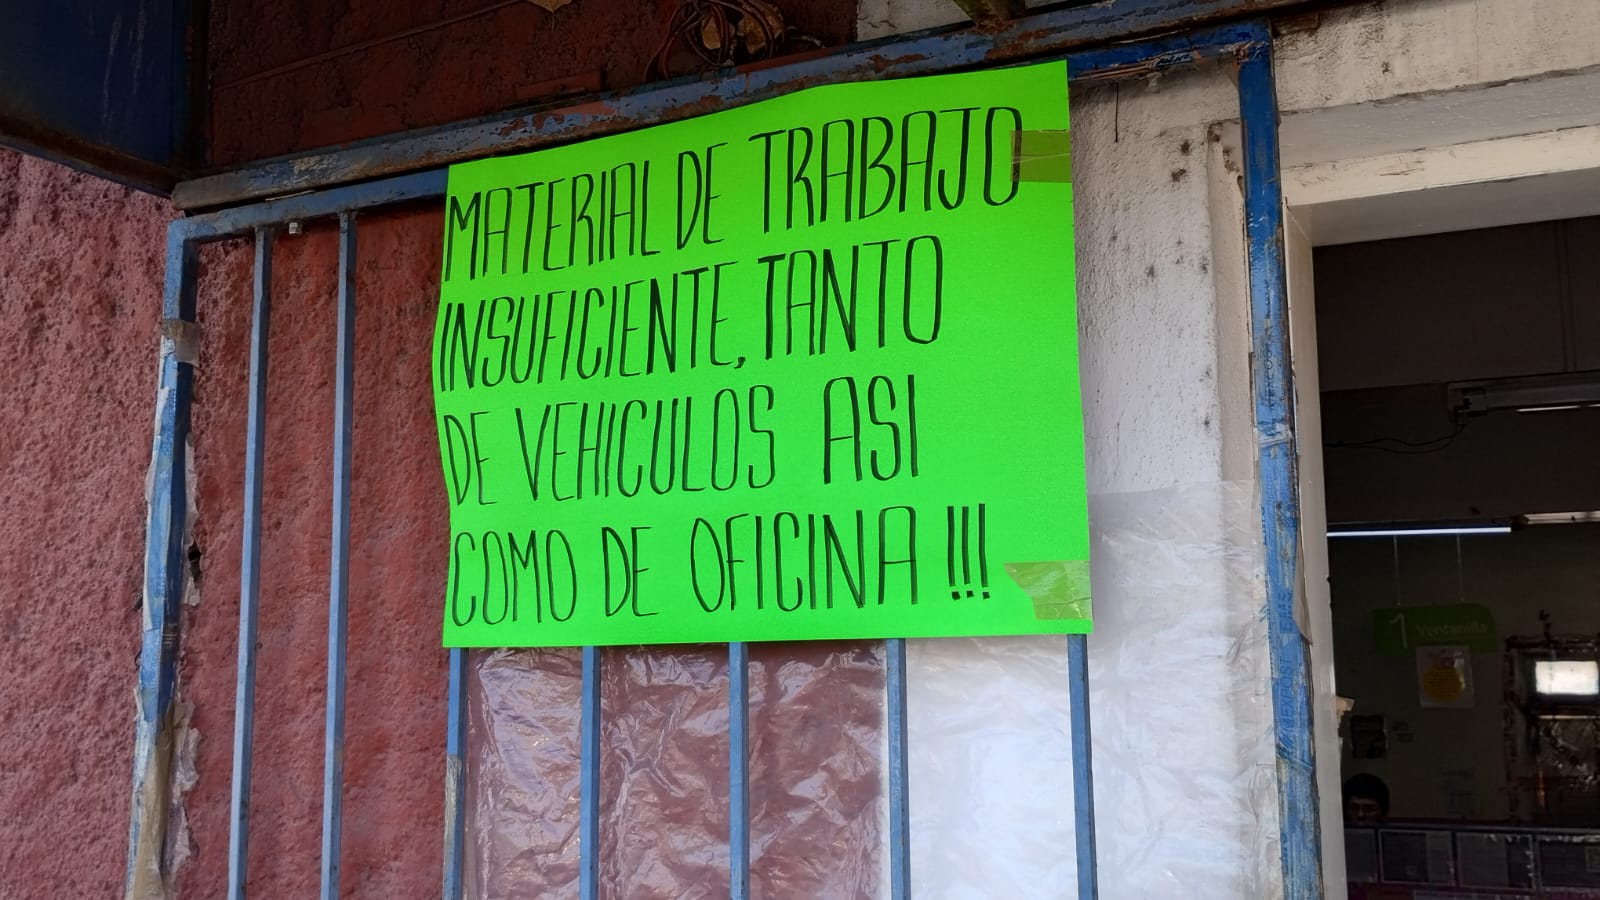 MATERIAL DE TRABAJO
INSUFICIENTE, TANTO
DE VEHICULOS ASI
COMO DE OFICINA !!!
1 Ventanilla